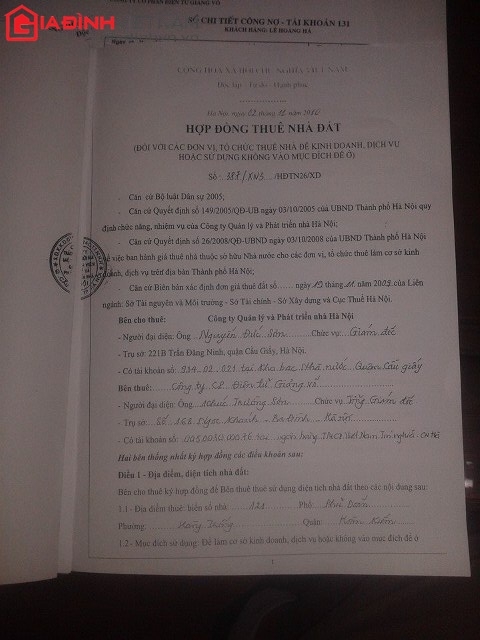 GIAĐÌNH
CÔNG TY CỔ PHẦN ĐIỆN TỬ GIẢNG VÕ
SỔ CHI TIẾT CÔNG NỢ - TÀI KHOẢN 131
KHÁCH HÀNG: LÊ HOÀNG HÀ
CỘNG HÒA XÃ HỘI CHỦ NGHĨA VIỆT NAM
Độc lập - Tự do - Hạnh phúc
Hà Nội, ngày 02 tháng
HỢP ĐỒNG THUÊ NHÀ ĐẤT
(ĐỐI VỚI CÁC ĐƠN VỊ, TỔ CHỨC THUÊ NHÀ ĐỂ KINH DOANH, DỊCH VỤ
HOẶC SỬ DỤNG KHÔNG VÀO MỤC ĐÍCH ĐỂ Ở)
Số: 388/XN3 /HĐTN26/XD
- Căn cứ Bộ luật Dân sự 2005;
- Căn cứ Quyết định số 149/2005/QĐ-UB ngày 03/10/2005 của UBND Thành phố Hà Nội quy
định chức năng, nhiệm vụ của Công ty Quản lý và Phát triển nhà Hà Nội;
- Căn cứ Quyết định số 26/2008/QĐ-UBND ngày 03/10/2008 của UBND Thành phố Hà Nội
về việc ban hành giá thuê nhà thuộc sở hữu Nhà nước cho các đơn vị, tổ chức thuê làm cơ sở kinh
doanh, dịch vụ trên địa bàn Thành phố Hà Nội;
- Căn cứ Biên bản xác định đơn giá thuê đất số ...... ngày 19 tháng 11 năm 2009 của Liên
ngành: Sở Tài nguyên và Môi trường - Sở Tài chính - Sở Xây dựng và Cục Thuế Hà Nội.
Bên cho thuê: Công ty Quản lý và Phát triển nhà Hà Nội
- Người đại diện: Ông Nguyễn Đức Sơn Chức vụ: Giám đốc
- Trụ sở: 221B Trần Đăng Ninh, quận Cầu Giấy, Hà Nội.
- Có tài khoản số: 934.02.021 tại Kho bạc Nhà nước Quận Cầu giấy
Bên thuê: Công ty CP Điện tử Giảng võ
- Người đại diện: Ông Khúc Trường Sơn Chức vụ Tổng Giám đốc
- Trụ sở: Số 168 Ngọc Khánh - Ba Đình Hà Nội
- Có tài khoản số: ngân hàng TMCP Việt Nam
Hai bên thống nhất ký hợp đồng các điều khoản sau:
Điều 1 - Địa điểm, diện tích nhà đất:
Bên cho thuê ký hợp đồng để Bên thuê thuê sử dụng diện tích nhà đất theo các nội dung sau:
1.1 - Địa điểm thuê: biển số nhà: Phố: Phủ Doãn
Phường: Hàng Trống Quận: Hoàn Kiếm
1.2 - Mục đích sử dụng: Để làm cơ sở kinh doanh, dịch vụ hoặc không vào mục đích để ở
1